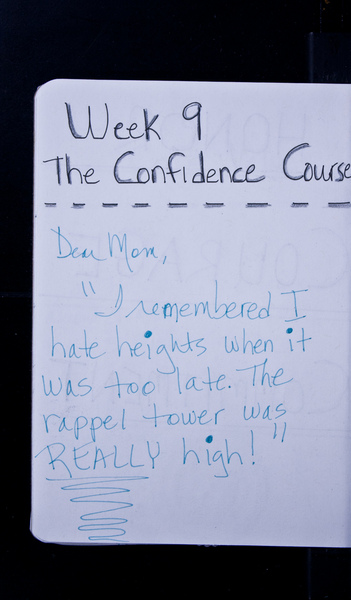 Week 9
The Confidence Course
Dear Mom,
"I remembered I
hate heights when it
was too late. The
rappel tower was
REALLY high!"